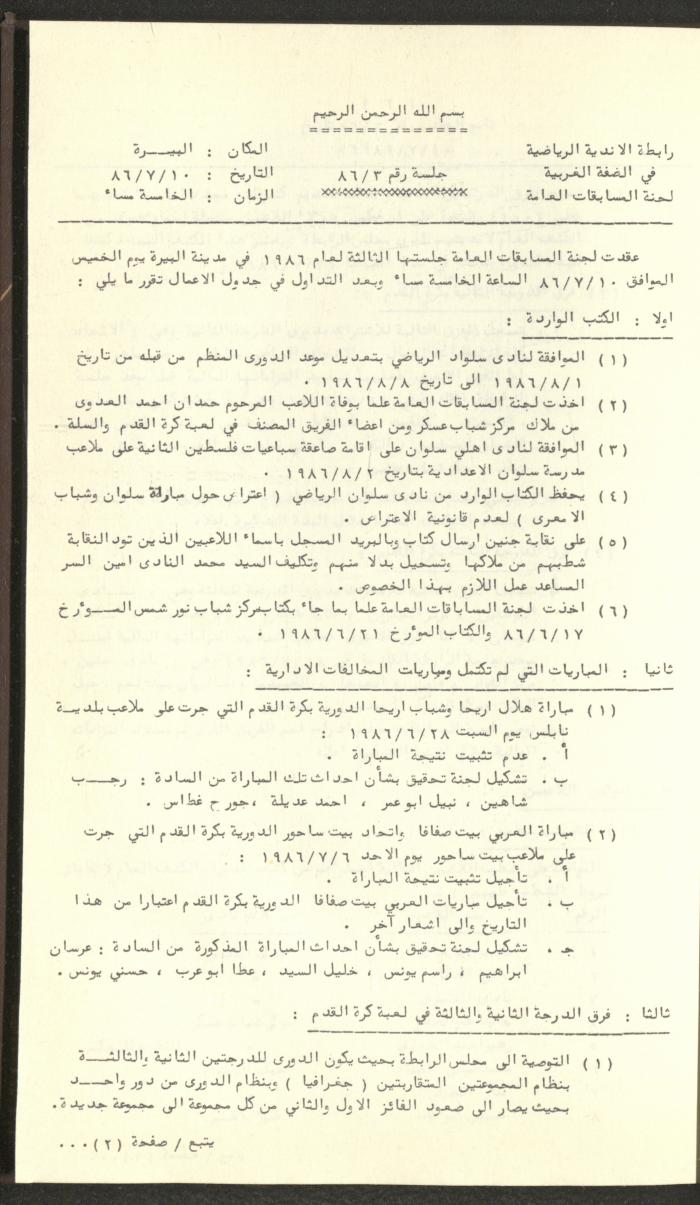 بسم الله الرحمن الرحيم
رابطة الاندية الرياضية المكان : البيـــرة
في الضفة الغربية جلسة رقم ٨٦/٣ التاريخ : ٨٦/٧/١٠
لجنة المسابقات العامة الزمان : الخامسة مساء
عقدت لجنة المسابقات العامة جلستها الثالثة لعام ١٩٨٦ في مدينة البيرة يوم الخميس
الموافق ٨٦/٧/١٠ الساعة الخامسة مساء وبعد التداول في جدول الاعمال تقرر ما يلي :
اولا : الكتب الواردة :
(١) الموافقة لنادى سلواد الرياضي بتعديل موعد الدورى المنظم من قبله من تاريخ
١٩٨٦/٨/١ الى تاريخ ١٩٨٦/٨/٨ .
(٢) اخذت لجنة المسابقات العامة علما بوفاة اللاعب المرحوم حمدان احمد العدوى
من ملاك مركز شباب عسكر ومن اعضاء الفريق المصنف في لعبة كرة القدم والسلة .
(٣) الموافقة لنادى اهلي سلوان على اقامة صاعقة سباعيات فلسطين الثانية على ملاعب
مدرسة سلوان الاعدادية بتاريخ ١٩٨٦/٨/٢ .
(٤) يحفظ الكتاب الوارد من نادى سلوان الرياضي ( اعتراض حول مباراة سلوان وشباب
الامعرى ) لعدم قانونية الاعتراض .
(٥) على نقابة جنين ارسال كتاب وبالبريد المسجل باسماء اللاعبين الذين تود النقابة
شطبهم من ملاكها وتسحيل بدلا منهم وتكليف السيد محمد النادى امين السر
المساعد عمل اللازم بهذا الخصوص .
(٦) اخذت لجنة المسابقات العامة علما بما جاء بكتاب مركز شباب نور شمس المـــؤرخ
٨٦/٦/١٧ والكتاب المؤرخ ١٩٨٦/٦/٢١ .
ثانيا : المباريات التي لم تكتمل ومباريات المخالفات الادارية :
(١) مباراة هلال اريحا وشباب اريحا الدورية بكرة القدم التي جرت على ملاعب بلديــة
نابلس يوم السبت ١٩٨٦/٦/٢٨ :
أ . عدم تثبيت نتيجة المباراة .
ب . تشكيل لجنة تحقيق بشأن احداث تلك المباراة من السادة : رجـــب
شاهين ، نبيل ابو عمر ، احمد عديلة ، جورج غطاس .
(٢) مباراة العربي بيت صفافا واتحاد بيت ساحور الدورية بكرة القدم التي جرت
على ملاعب بيت ساحور يوم الاحد ١٩٨٦/٧/٦ :
أ . تأجيل تثبيت نتيجة المباراة .
ب . تأجيل مباريات العربي بيت صفافا الدورية بكرة القدم اعتبارا من هذا
التاريخ والى اشعار آخر .
جـ . تشكيل لجنة تحقيق بشأن احداث المباراة المذكورة من السادة : عرسان
ابراهيم ، راسم يونس ، خليل السيد ، عطا ابو عرب ، حسني يونس .
ثالثا : فرق الدرجة الثانية والثالثة في لعبة كرة القدم :
(١) التوصية الى مجلس الرابطة بحيث يكون الدورى للدرجتين الثانية والثالثـــة
بنظام المجموعتين المتقاربتين ( جغرافيا ) وبنظام الدورى من دور واحـــد
بحيث يصار الى صعود الفائز الاول والثاني من كل مجموعة الى مجموعة جديدة.
يتبع / صفحة (٢) ...